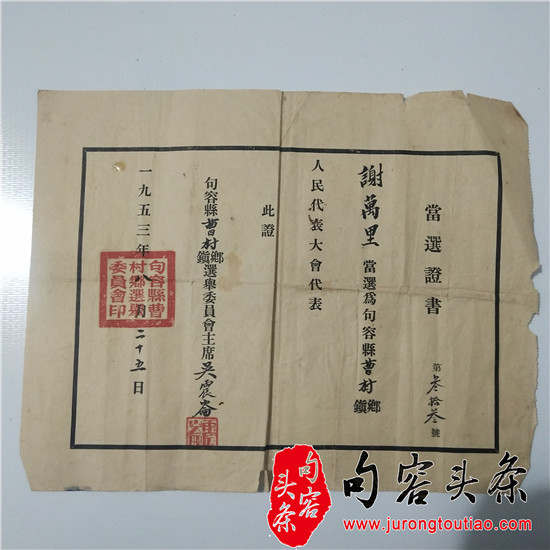 當選證書
第叁拾叁號
謝萬里當選爲句容縣曹村鄉鎭
人民代表大會代表
此證
句容縣曹村鄉鎭選舉委員會主席吳震崙
一九五三年八月二十五日
句容縣曹
村鄉選舉
委員會印
句容头条
句容头条
www.jurongtoutiao.com